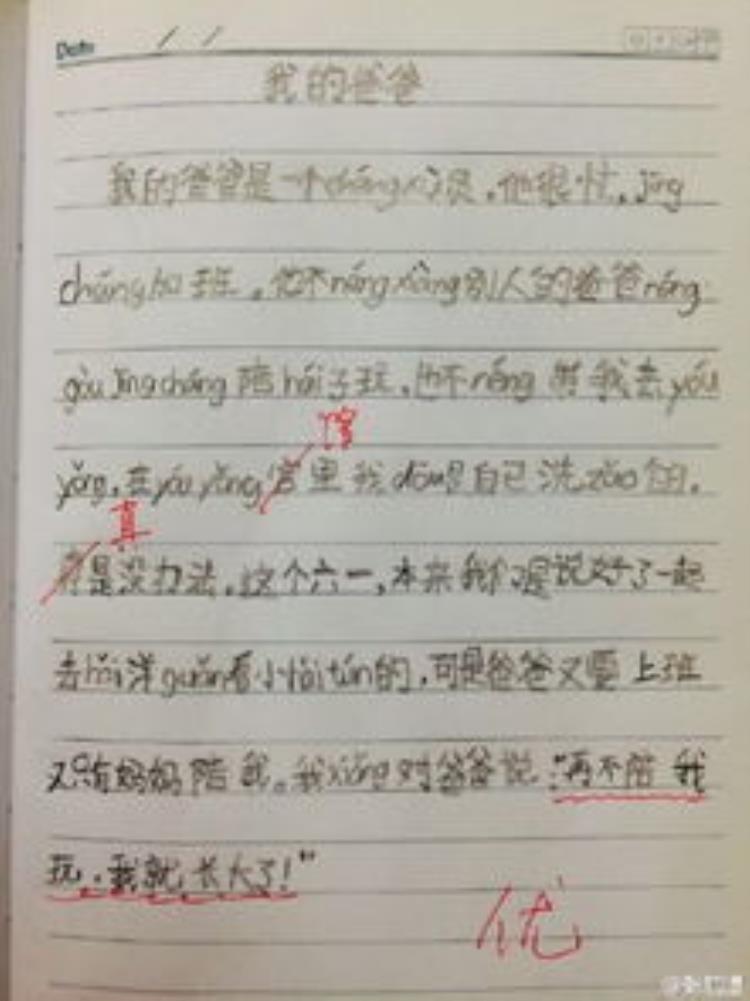 Date / /
我的爸爸
我的爸爸是一个chángxùn员,他很忙,jīng
cháng加班。他不néng xiàng别人的爸爸néng
gòu jīngcháng陪hái子玩,也不néng带我去yóu
馆
yǒng,在yóu yǒng官里我dōu是自己洗zǎo的。
真
是没力法。这个六一,本来我们是说好了一起
去hǎi洋guǎn看小hǎi tún的,可是爸爸又要上班
又只有妈妈陪我。我xiǎng对爸爸说:“再不陪我
玩,我就长大了!”
优